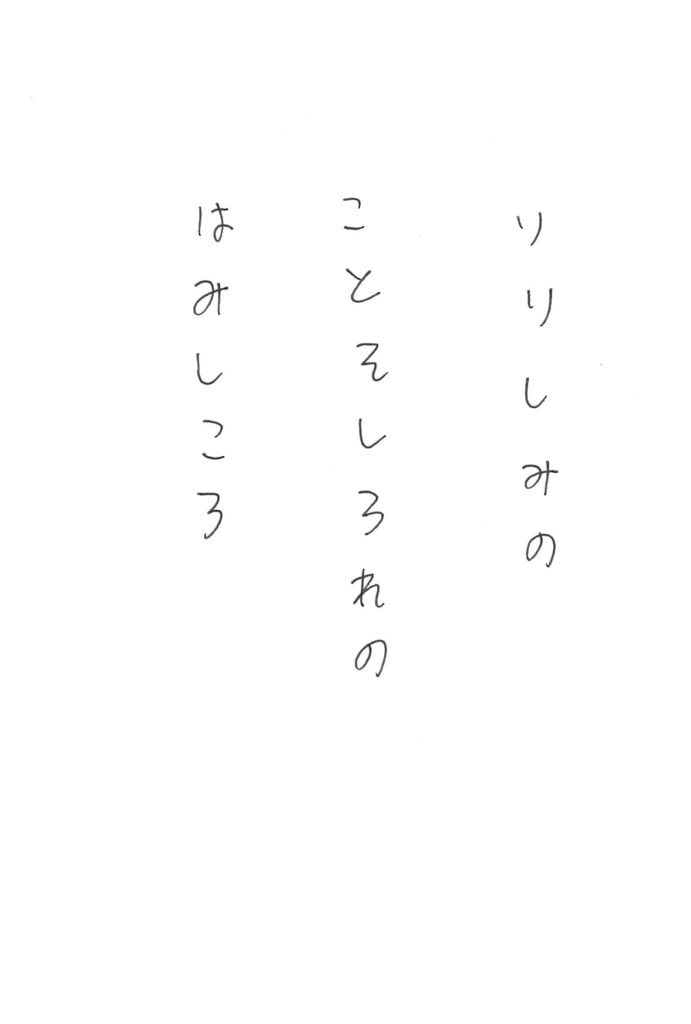 りりしみの
ことそしろれの
はみしころ